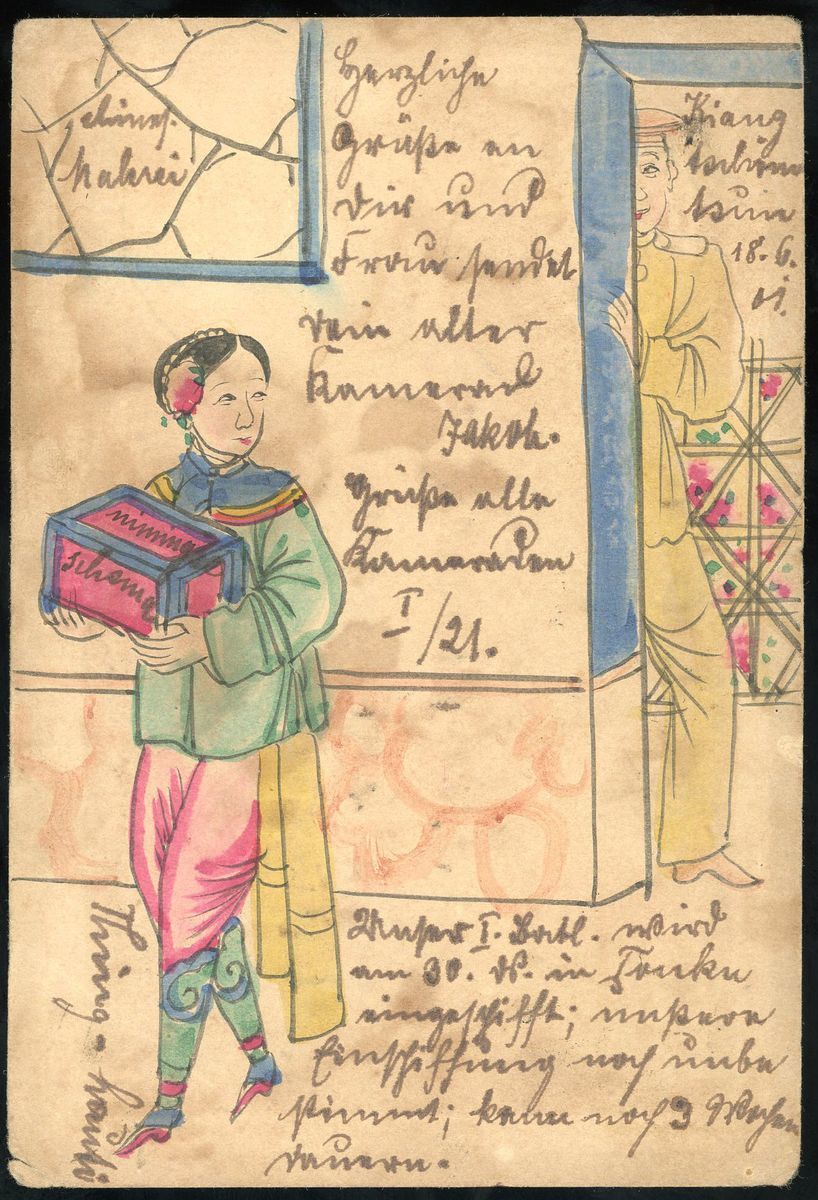 chines.
Malerei
Herzliche
Grüße an
Dir und
Frau sendet
dein alter
Kamerad
Jakob.
Grüße alle
Kameraden
I/21.
Kiang
tschim
tsun
18.6.
01.
niming
schoma
Unser I. Batl. wird
am 30. ds. in Taku
eingeschifft; unsere
Einschiffung noch unbe
stimmt; kann noch 3 Wochen
dauern.